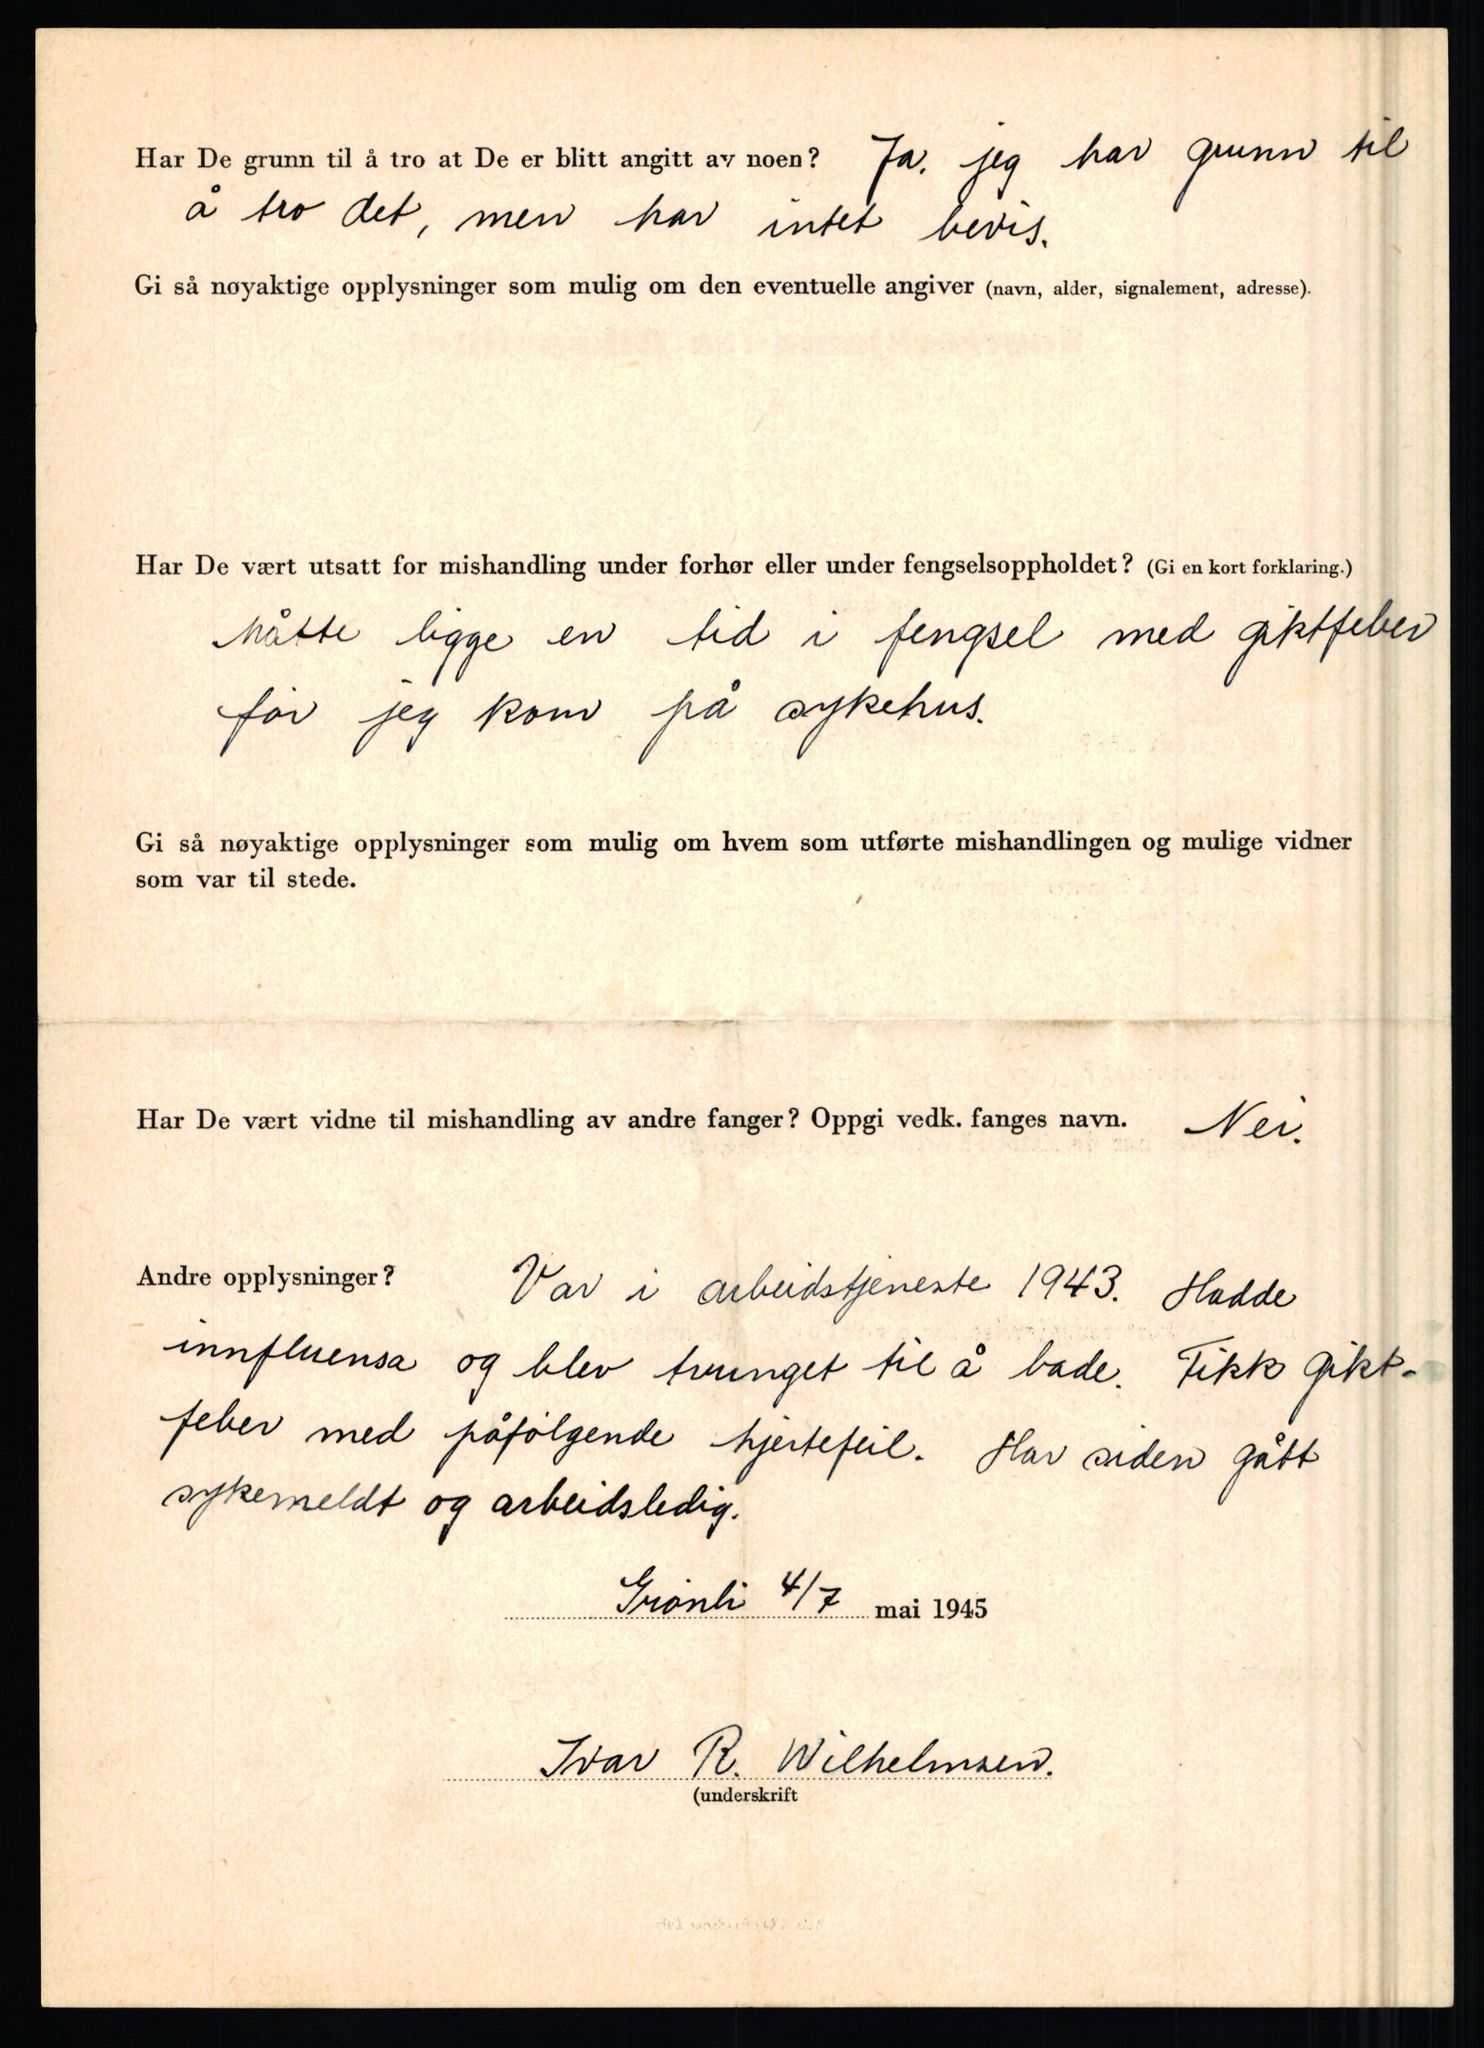 Har De grunn til å tro at De er blitt angitt av noen? Ja. jeg har grunn til
å tro det, men har intet bevis.
Gi så nøyaktige opplysninger som mulig om den eventuelle angiver (navn, alder, signalement, adresse).
Har De vært utsatt for mishandling under forhør eller under fengselsoppholdet? (Gi en kort forklaring.)
Måtte ligge en tid i fengsel med giktfeber
før jeg kom på sykehus.
Gi så nøyaktige opplysninger som mulig om hvem som utførte mishandlingen og mulige vidner
som var til stede.
Har De vært vidne til mishandling av andre fanger? Oppgi vedk. fanges navn. Nei.
Andre opplysninger? Var i arbeidstjeneste 1943. Hadde
innfluensa og blev tvunget til å bade. Fikk gikt-
feber med påfølgende hjertefeil. Har siden gått
sykemeldt og arbeidsledig.
Grønli 4/7 mai 1945
Ivar R. Wilhelmsen.
(underskrift